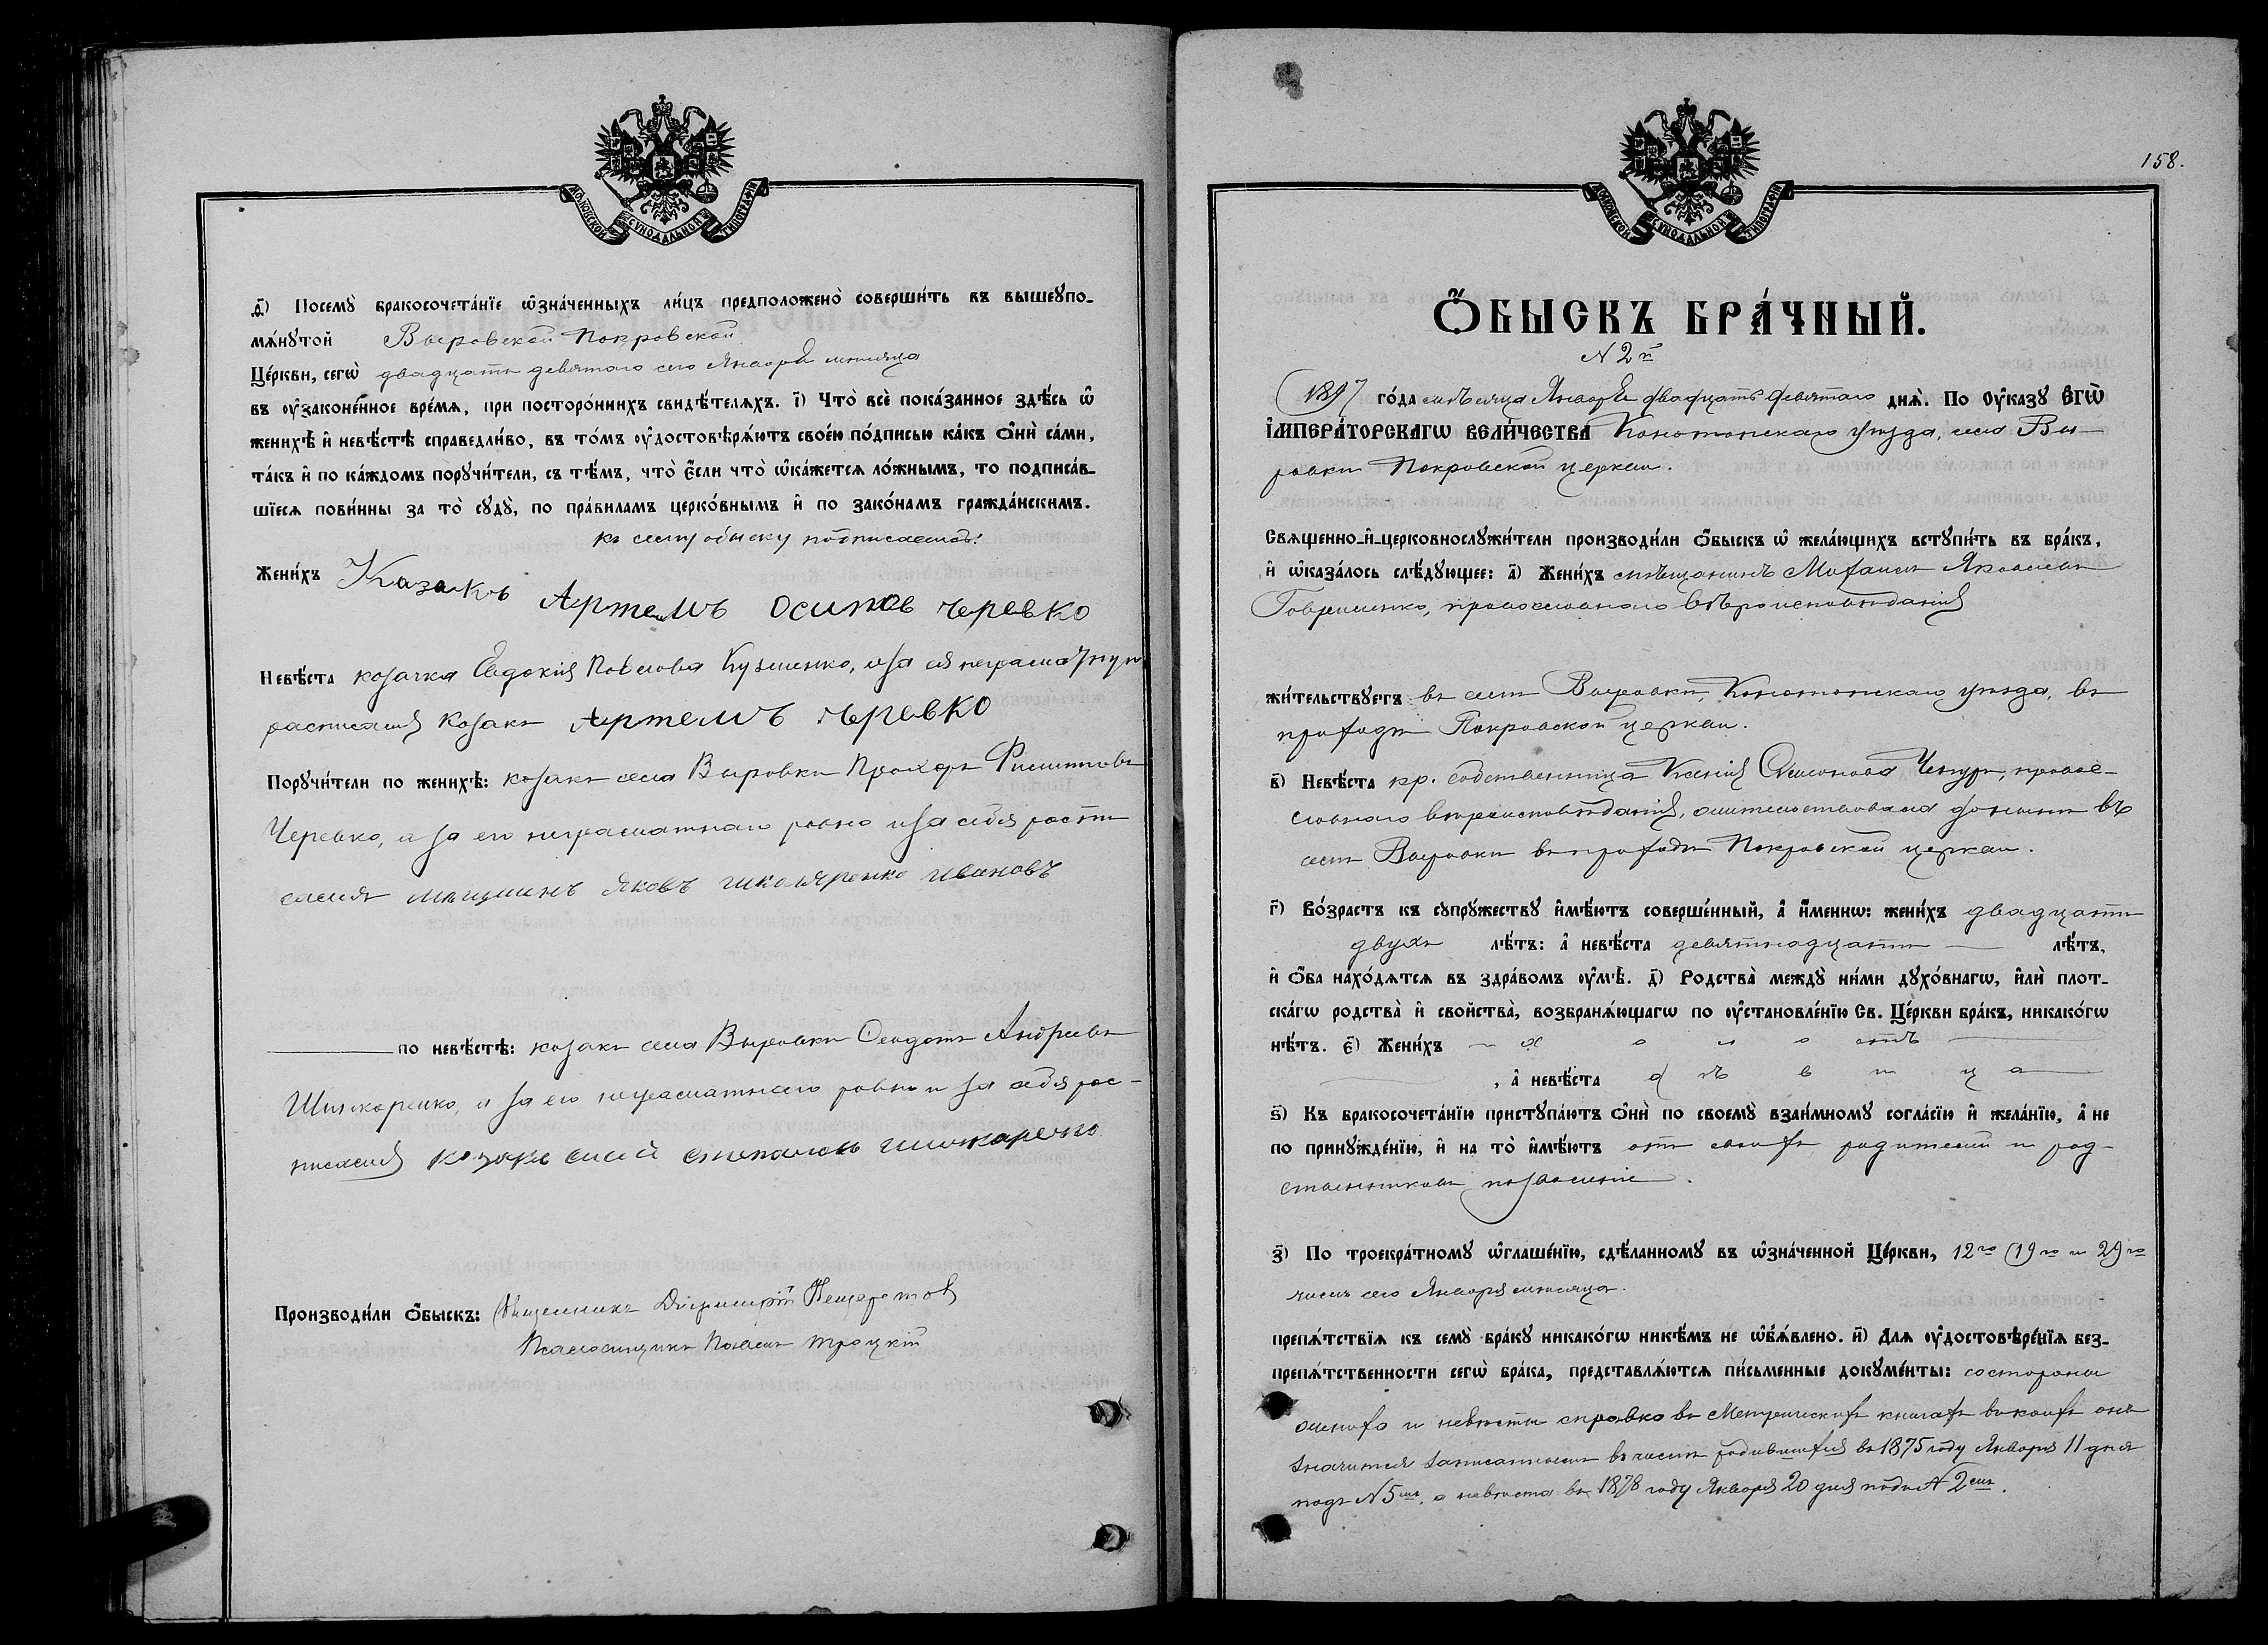 МОСКОВСКОЙ СѴНОДАЛЬНОЙ ТИПОГРАФІИ
д҃) Посемꙋ̀ бракосочета́нїе ѡ҆зна́ченныхъ ли́цъ предположено̀ соверши́ть въ вышеꙋпо-
мѧ́нꙋтой Выровской Покровской
Це́ркви, сегѡ̀ двадцать девятаго сего Января мѣсяца
въ ᲂу҆законе́нное вре́мѧ, при посторо́ннихъ свидѣ́телѧхъ. і҃) Что̀ всѐ пока́занное здѣ́сь ѡ҆
женихѣ̀ и҆ невѣ́стѣ справедли́во, въ то́мъ ᲂу҆достовѣрѧ́ютъ свое́ю по́дписью ка́къ ѻ҆нѝ са́ми,
та́къ и҆ по ка́ждомъ порꙋчи́тели, съ тѣ́мъ, что̀ є҆́сли что̀ ѡ҆ка́жетсѧ ло́жнымъ, то подписа́в-
шїесѧ пови́нны за то̀ сꙋдꙋ̀, по пра́виламъ церко́внымъ и҆ по зако́намъ гражда́нскимъ.
къ сему обыску подписались:
Жени́хъ Казакъ Артемъ Осиповъ Черевко
Невѣ́ста козачка Евдокія Павлова Кузменко, а за ея неграмотную
росписался козакъ Артемъ Черевко
Порꙋчи́тели по женихѣ̀: козакъ села Выровки Прохоръ Филиповъ
Черевко, а за его неграматнаго равно и за себя роспи
сался мещанинъ Яковъ школяренко ивановъ
по невѣ́стѣ: козакъ села Выровки Феодотъ Андреевъ
Шинкаренко, а за его неграматнаго равно и за себя рос-
писался козакъ шинкаренко
Производи́ли ѻ҆́быскъ: Священникъ Димитрій
Псаломщикъ Павелъ Троцкій
158.
МОСКОВСКОЙ СѴНОДАЛЬНОЙ ТИПОГРАФІИ
Ѻ҆́БЫСКЪ БРА́ЧНЫЙ.
N 2й
1897 го́да мѣсяца Января двадцать девятаго днѧ̀. По Оу҆ка́зꙋ Є҆Гѡ̀
І҆МПЕРА́ТОРСКАГѠ ВЕЛИ́ЧЕСТВА Конотопскаго уѣзда, села Вы-
ровки Покровской церкви.
Свѧще́нно-и҆-церковнослꙋжи́тели производи́ли ѻ҆́быскъ ѡ҆ жела́ющихъ встꙋпи́ть въ бра́къ,
и҆ ѡ҆каза́лось слѣ́дꙋющее: а҃) Жени́хъ мѣщанинъ Михаилъ Яковлевъ
Говриленко, православнаго вѣроисповѣданія
жи́тельствꙋетъ въ селѣ Выровки, Конотопскаго уѣзда, въ
приходѣ Покровской церкви.
в҃) Невѣ́ста кр. собственница Ксенія Чепур, правос-
славнаго вѣроисповѣданія, жительствовала донынѣ въ
селѣ Выровки въ приходѣ Покровской церкви.
г҃) Во́зрастъ къ сꙋпрꙋ́жествꙋ и҆мѣ́ютъ соверше́нный, а҆ и҆́менно: жени́хъ двадцати
двухъ лѣ́тъ: а҆ невѣ́ста девятнадцати лѣ́тъ,
и҆ ѻ҆́ба нахо́дѧтсѧ въ здра́вомъ ᲂу҆мѣ̀. д҃) Родства̀ междꙋ̀ ни́ми дꙋхо́внагѡ, и҆лѝ плот-
ска́гѡ родства̀ и҆ свойства̀, возбранѧ́ющагѡ по ᲂу҆становле́нїю Св. Це́ркви бра́къ, никако́гѡ
нѣ́тъ. є҃) Жени́хъ х о л о стъ
, а҆ невѣ́ста д ѣ в и ц а
ѕ҃) Къ бракосочета́нїю пристꙋпа́ютъ ѻ҆нѝ по своемꙋ̀ взаи́мномꙋ согла́сїю и҆ жела́нїю, а҆ не
по принꙋжде́нїю, и҆ на то̀ и҆мѣ́ютъ отъ своихъ родителей и род-
ственниковъ позволеніе.
з҃) По троекра́тномꙋ ѡ҆глаше́нїю, сдѣ́ланномꙋ въ ѡ҆зна́ченной Це́ркви, 12го 19го и 29го
числъ сего Января мѣсяца.
препѧ́тствїѧ къ семꙋ̀ бра́кꙋ никако́гѡ никѣ́мъ не ѡ҆б̾ѧ́влено. и҃) Длѧ ᲂу҆достовѣре́нїѧ без-
препѧ́тственности сегѡ̀ бра́ка, представлѧ́ютсѧ пи́сьменные докꙋме́нты: со стороны
жениха и невѣсты справка въ Метрическихъ книгахъ въ коихъ онъ
значится записаннымъ въ числѣ родившихся въ 1875 году Января 11 дня
подъ N 5мъ, а невѣста въ 1878 году Января 20 дня подъ N 2мъ.